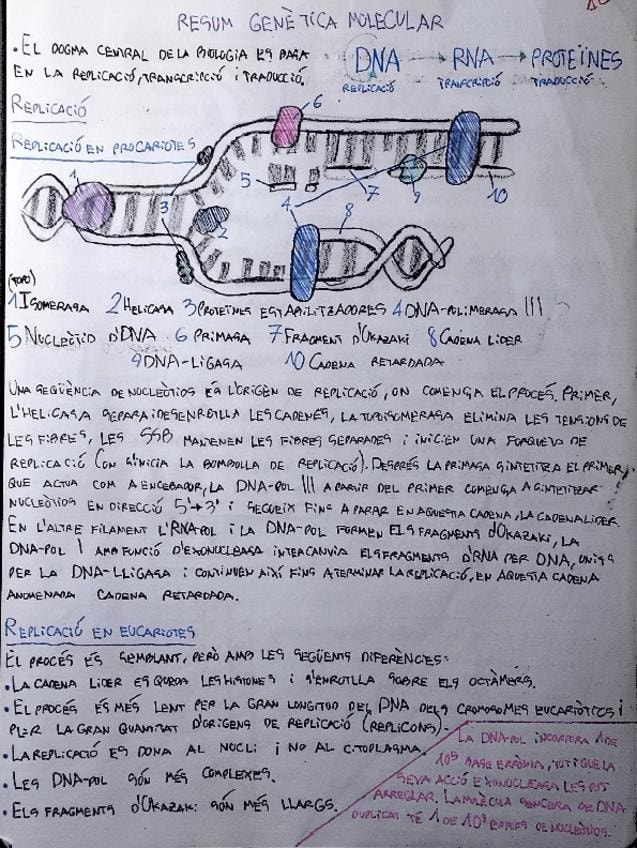 RESUM GENÈTICA MOLECULAR
• EL DOGMA CENTRAL DE LA BIOLOGIA ES BASA
EN LA REPLICACIÓ, TRANSCRIPCIÓ I TRADUCCIÓ.
DNA → RNA → PROTEÏNES
REPLICACIÓ TRANSCRIPCIÓ TRADUCCIÓ
REPLICACIÓ
REPLICACIÓ EN PROCARIOTES
1 2 3 4 5 6 7 8 9 10
(TOPO)
1 ISOMERASA 2 HELICASA 3 PROTEÏNES ESTABILITZADORES 4 DNA-POLIMERASA III
5 NUCLEÒTID D'DNA 6 PRIMASA 7 FRAGMENT D'OKAZAKI 8 CADENA LIDER
9 DNA-LIGASA 10 CADENA RETARDADA
UNA SEQÜÈNCIA DE NUCLEÒTIDS ÉS L'ORIGEN DE REPLICACIÓ, ON COMENÇA EL PROCÉS. PRIMER,
L'HELICASA SEPARA I DESENROTLLA LES CADENES, LA TOPOISOMERASA ELIMINA LES TENSIONS DE
LES FIBRES, LES SSB MANTENEN LES FIBRES SEPARADES I INICIEN UNA FORQUETA DE
REPLICACIÓ (ON S'INICIA LA BOMBOLLA DE REPLICACIÓ). DESPRÉS LA PRIMASA SINTETITZA EL PRIMER,
QUE ACTUA COM A ENCEBADOR, LA DNA-POL III A PARTIR DEL PRIMER COMENÇA A SINTETITZAR
NUCLEÒTIDS EN DIRECCIÓ 5'→3' I SEGUEIX FINS A PARAR EN AQUESTA CADENA, LA CADENA LIDER.
EN L'ALTRE FILAMENT L'RNA-POL I LA DNA-POL FORMEN ELS FRAGMENTS D'OKAZAKI, LA
DNA-POL I AMB FUNCIÓ D'EXONUCLEASA INTERCANVIA ELS FRAGMENTS D'RNA PER DNA, UNITS
PER LA DNA-LLIGASA I CONTINUEN AIXÍ FINS A TERMINAR LA REPLICACIÓ, EN AQUESTA CADENA
ANOMENADA CADENA RETARDADA.
REPLICACIÓ EN EUCARIOTES
EL PROCÉS ÉS SEMBLANT, PERÒ AMB LES SEGÜENTS DIFERÈNCIES:
• LA CADENA LIDER ES QUEDA LES HISTONES I S'ENROTLLA SOBRE ELS OCTÀMERS.
• EL PROCÉS ÉS MÉS LENT PER LA GRAN LONGITUD DEL DNA DELS CROMOSOMES EUCARIÒTICS I
PER LA GRAN QUANTITAT D'ORÍGENS DE REPLICACIÓ (REPLICONS).
• LA REPLICACIÓ ES DONA AL NUCLI I NO AL CITOPLASMA.
• LES DNA-POL SÓN MÉS COMPLEXES.
• ELS FRAGMENTS D'OKAZAKI SÓN MÉS LLARGS.
LA DNA-POL INCORPORA 1 DE
10⁵ BASE ERRÒNIA, TOT I QUE LA
SEVA ACCIÓ EXONUCLEASA LES POT
ARREGLAR. LA MOLÈCULA SENCERA DE DNA
DUPLICAT TÉ 1 DE 10⁹ ERRORS DE NUCLEÒTIDS.